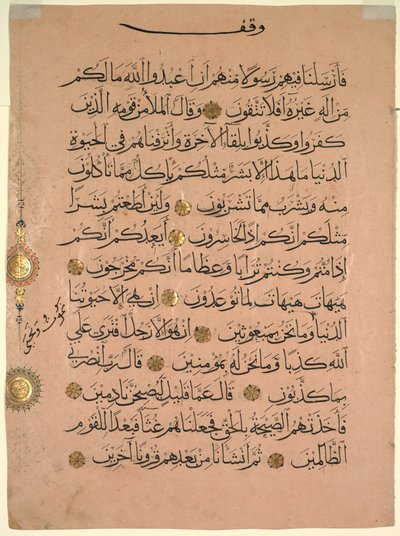 وقف
فَأَرْسَلْنَا فِيهِمْ رَسُولًا مِنْهُمْ أَنِ اعْبُدُوا اللَّهَ مَا لَكُمْ
مِنْ إِلَهٍ غَيْرُهُ أَفَلَا تَتَّقُونَ وَقَالَ الْمَلَأُ مِنْ قَوْمِهِ الَّذِينَ
كَفَرُوا وَكَذَّبُوا بِلِقَاءِ الْآخِرَةِ وَأَتْرَفْنَاهُمْ فِي الْحَيَوةِ
الدُّنْيَا مَا هَذَا إِلَّا بَشَرٌ مِثْلُكُمْ يَأْكُلُ مِمَّا تَأْكُلُونَ
مِنْهُ وَيَشْرَبُ مِمَّا تَشْرَبُونَ وَلَئِنْ أَطَعْتُمْ بَشَرًا
مِثْلَكُمْ إِنَّكُمْ إِذًا لَخَاسِرُونَ أَيَعِدُكُمْ أَنَّكُمْ
إِذَا مِتُّمْ وَكُنْتُمْ تُرَابًا وَعِظَامًا أَنَّكُمْ مُخْرَجُونَ
هَيْهَاتَ هَيْهَاتَ لِمَا تُوعَدُونَ إِنْ هِيَ إِلَّا حَيَوتُنَا
الدُّنْيَا وَمَا نَحْنُ بِمَبْعُوثِينَ إِنْ هُوَ إِلَّا رَجُلٌ افْتَرَى عَلَى
نموت ونحيا
اللَّهِ كَذِبًا وَمَا نَحْنُ لَهُ بِمُؤْمِنِينَ قَالَ رَبِّ انْصُرْنِي
بِمَا كَذَّبُونِ قَالَ عَمَّا قَلِيلٍ لَيُصْبِحُنَّ نَادِمِينَ
فَأَخَذَتْهُمُ الصَّيْحَةُ بِالْحَقِّ فَجَعَلْنَاهُمْ غُثَاءً فَبُعْدًا لِلْقَوْمِ
الظَّالِمِينَ ثُمَّ أَنْشَأْنَا مِنْ بَعْدِهِمْ قُرُونًا آخَرِينَ